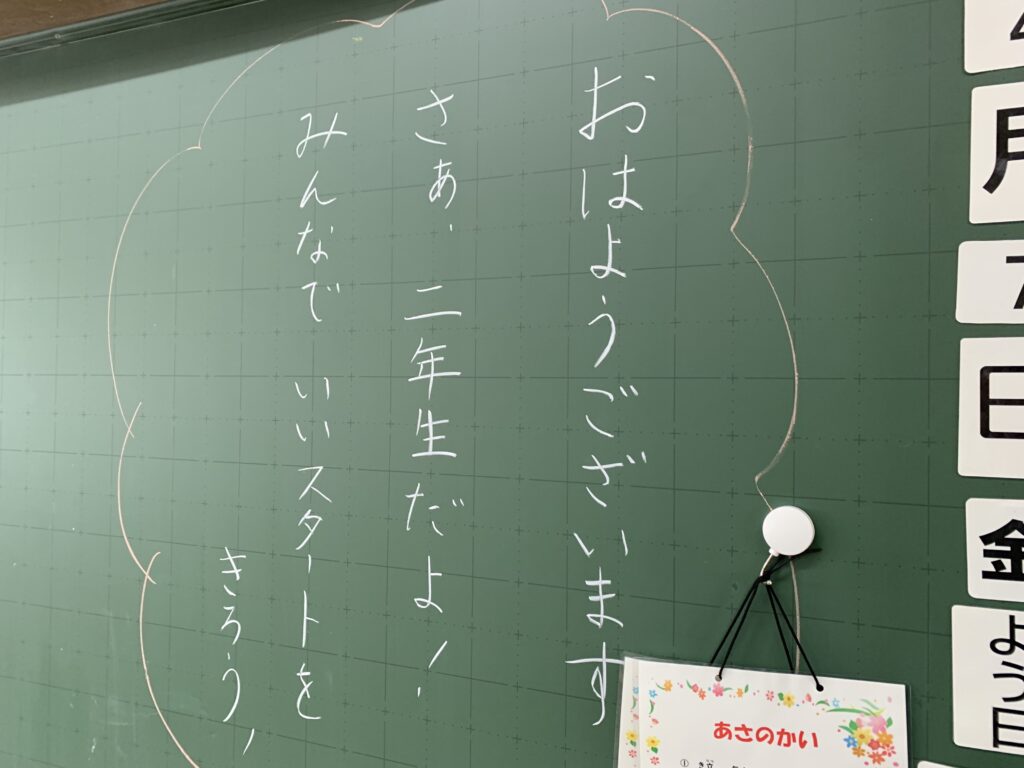 おはようございます
さぁ、二年生だよ!
みんなで いいスタートを
きろう、
月
7
日
金
よう日
あさのかい